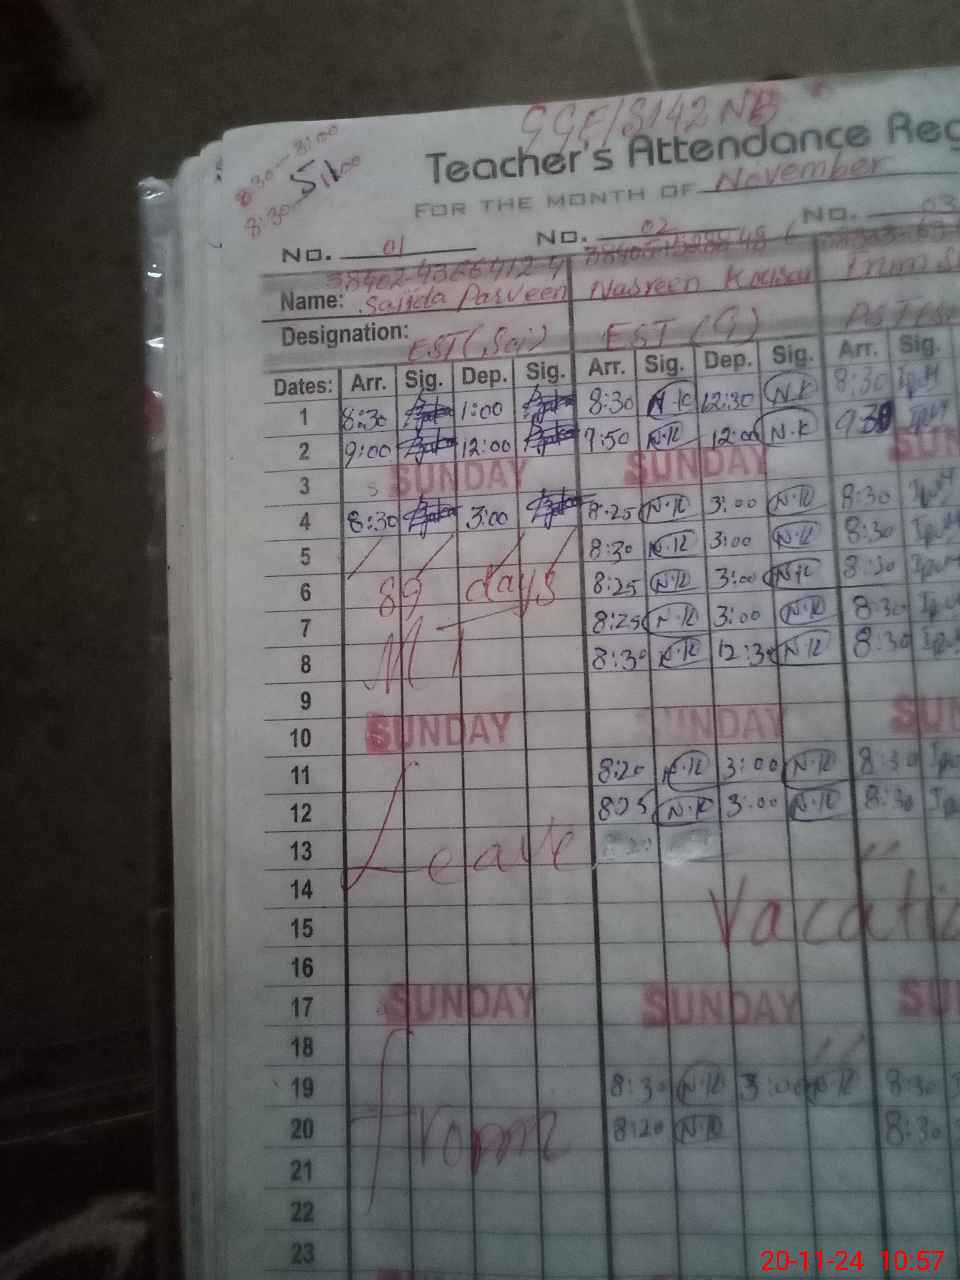 GGE/S 142 NB
Teacher's Attendance Reg
8:30 – 3:00
8:30
FOR THE MONTH OF November
No. 01 No. 02 No. 03
Name: Sajida Parveen Nasreen Kousar
Designation: EST (Sci) EST (G)
Dates: Arr. Sig. Dep. Sig. Arr. Sig. Dep. Sig. Arr. Sig.
1 8:30 1:00 8:30 N.K 12:30 N.K 8:30
2 9:00 12:00 7:50 N.K 12:00 N.K
3 SUNDAY SUNDAY SUN
4 8:30 3:00 8:25 N.K 3:00 N.K 8:30
5 8:30 N.K 3:00 N.K 8:30
6 89 days 8:25 N.K 3:00 N.K 8:30
7 8:25 N.K 3:00 N.K 8:30
8 8:30 N.K 12:30 N.K 8:30
9
10 SUNDAY SUNDAY SUN
11 8:20 N.K 3:00 N.K 8:30
12 8:25 N.K 3:00 N.K 8:30
13 Leave
14
15 Vacati
16
17 SUNDAY SUNDAY SU
18
19 8:30 N.K 3:00 N.K 8:30
20 From 8:20 N.K 8:30
21
22
23
20-11-24 10:57